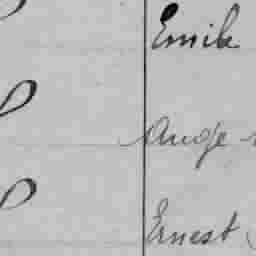 Emile
Ange
Ernest